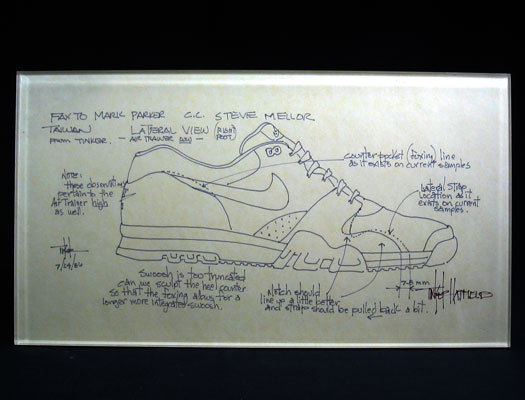 FAX TO MARK PARKER C.C. STEVE MELLOR
TAIWAN
FROM TINKER.
LATERAL VIEW (RIGHT FOOT)
- AIR TRAINER LOW -
COUNTER POCKET (FOXING) LINE
AS IT EXISTS ON CURRENT SAMPLES
NOTE:
THESE OBSERVATIONS
PERTAIN TO THE
AIR TRAINER HIGH
AS WELL.
LATERAL STRAP
LOCATION AS IT
EXISTS ON CURRENT
SAMPLES.
SWOOSH IS TOO TRUNCATED
CAN WE SCULPT THE HEEL COUNTER
SO THAT THE FOXING ALLOWS FOR A
LONGER MORE INTEGRATED SWOOSH.
NOTCH SHOULD
LINE UP A LITTLE BETTER
AND STRAP SHOULD BE PULLED BACK A BIT.
7-8 MM
TINKER HATFIELD